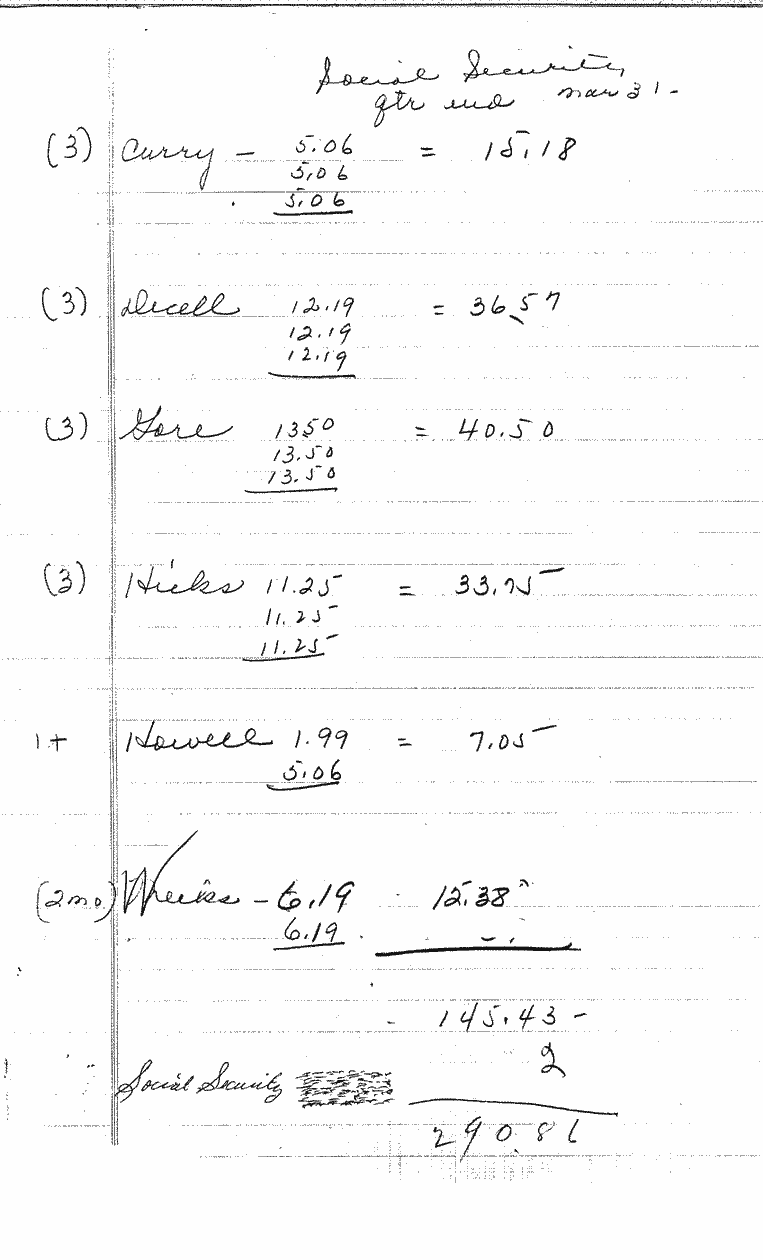 Social Security
qtr end Mar 31-
(3) Curry - 5.06 = 15.18
5.06
5.06
(3) Decell 12.19 = 36.57
12.19
12.19
(3) Gore 1350 = 40.50
13.50
13.50
(3) Hicks 11.25 = 33.75
11.25
11.25
1+ Howell 1.99 = 7.05
5.06
(2 mo.) Weeks - 6.19 - 12.38
6.19
145.43 -
2
Social Security
290.86